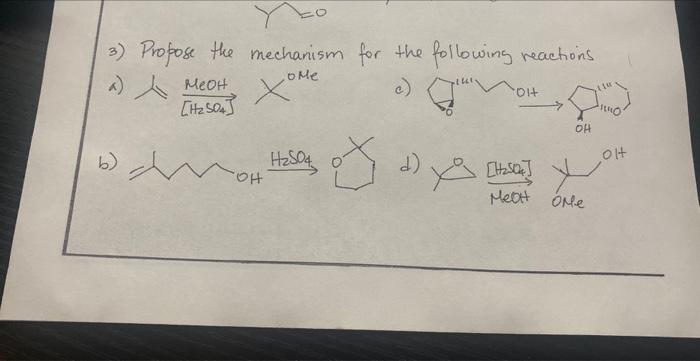 O
3) Propose the mechanism for the following reactions
a) MeOH [H2SO4] OMe
c) OH O O OH
b) OH H2SO4 O
d) O [H2SO4] MeOH OH OMe